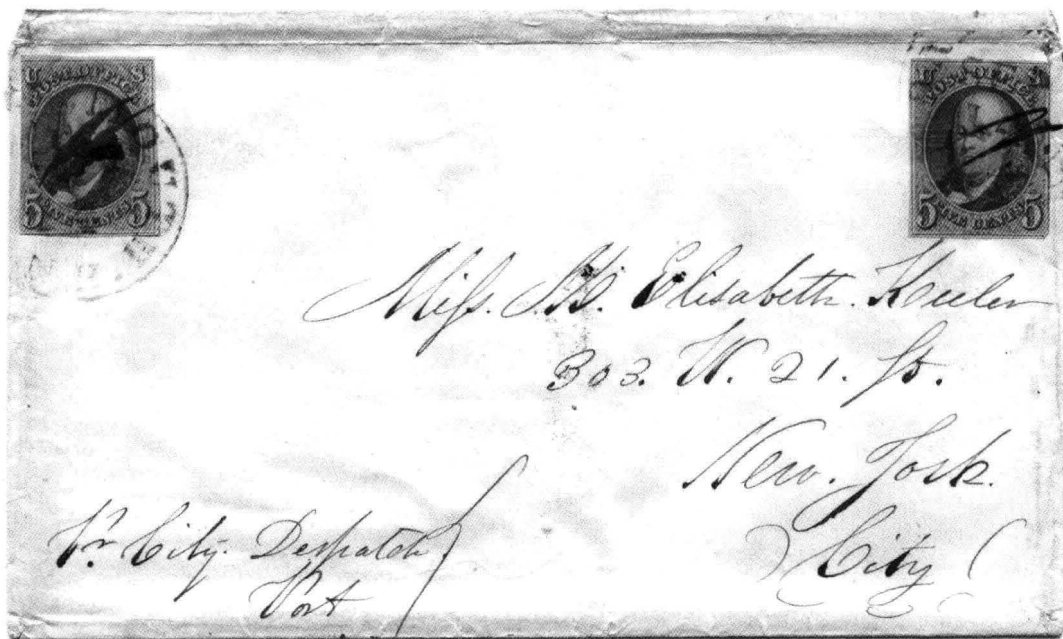 U S
POST OFFICE
FIVE CENTS
5 5
U S
POST OFFICE
FIVE CENTS
5 5
Miss. Elisabeth. Keeler
303. W. 21. St.
New. York.
City
Pr City. Despatch
Post